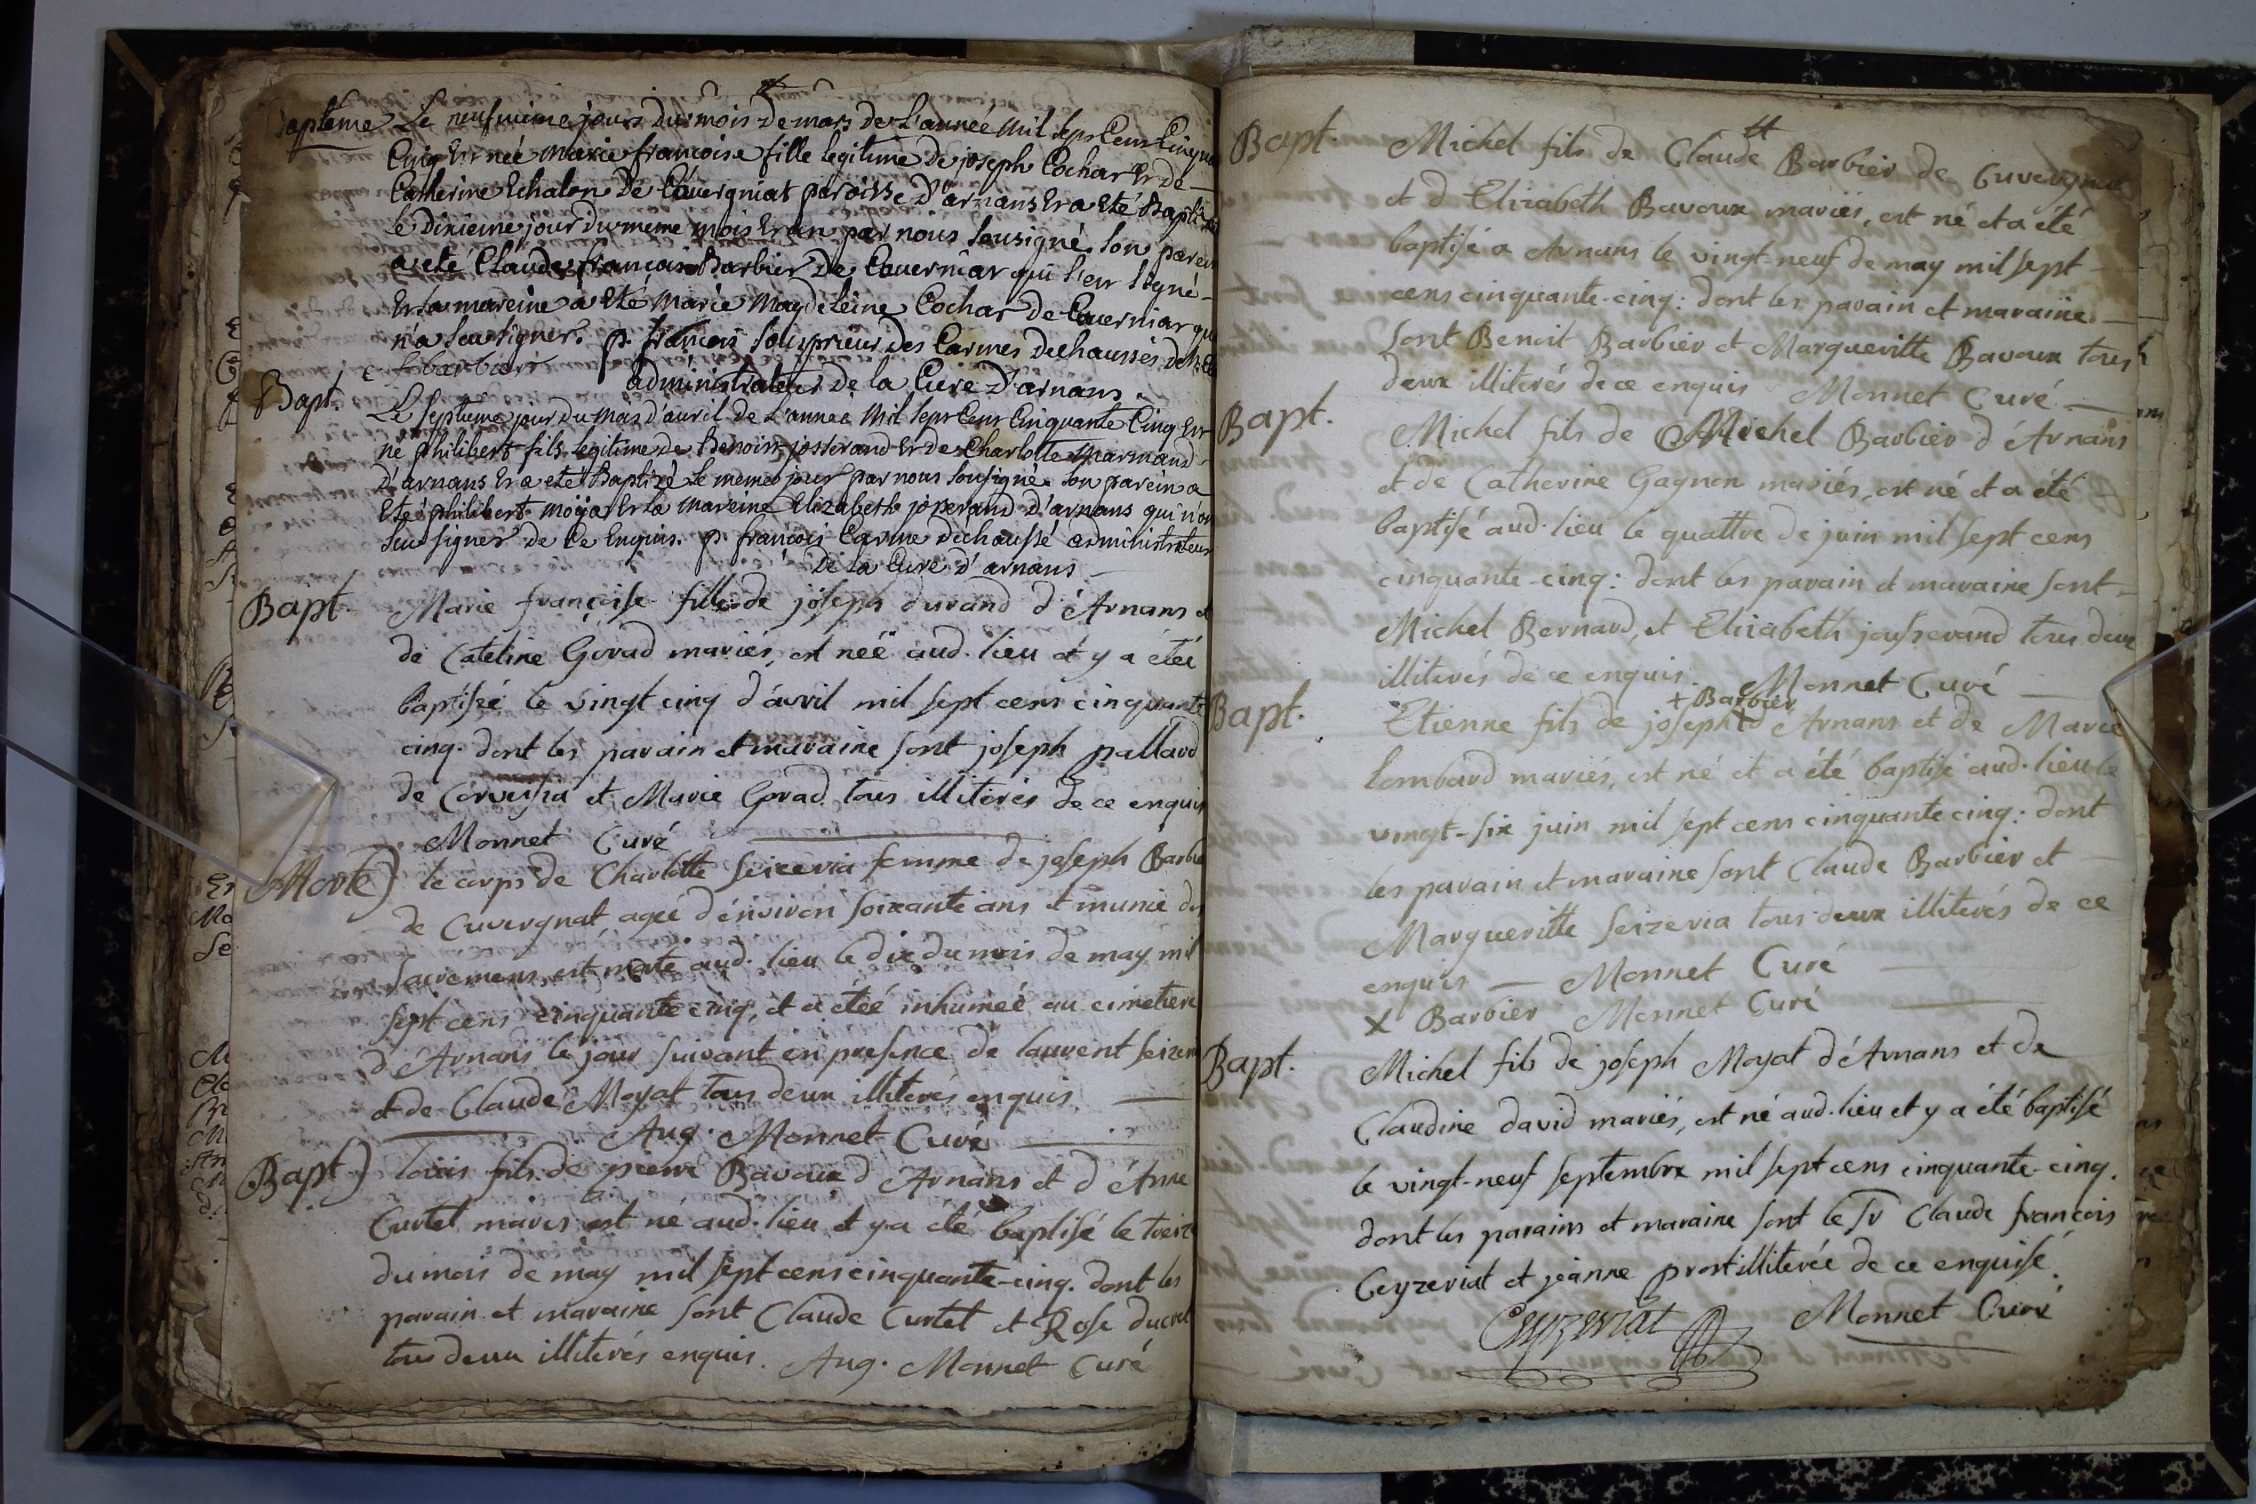 Bapteme Le neufvieme jours du mois de mars de L'année Mil sept Cens Cinquante
Cinq Est née Marie francoise fille legitime de joseph Cochar Et de
Catherine Echalon de Cauvergniat paroisse D'arnans Et a Eté Baptizée
le Dixieme jour du meme mois Et an par nous sousigné, son parein
a eté Claude francois Barbier De Cauverniar qui s'est signé
Et sa mareine a Eté Marie Magdeleine Cochar de Cauverniar qui
n'a sceu signer. p. francois sousprieur des Carmes dechaussés
C f barbier
administrateur de la Cure D'arnans.
Bapt. Le septieme jour du Mois d'avril de L'année Mil sept Cens Cinquante Cinq Est
né philibert fils legitime de Benoist josserand Et de Charlotte Marmand
D'arnans Et a eté Baptizé Le meme jour par nous sousigné son parein a
Eté philibert moyar Et la mareine Elizabeth josserand D'arnans qui n'ont
sceu signer de Ce Enquis. p. francois Carme dechaussé administrateur
De la Cure d'arnans
Bapt. Marie françoise fille de joseph durand d'Arnans et
de Cateline Gorad mariés, est néë aud. lieu et y a étéé
baptisée le vingt cinq d'avril mil sept cens cinquante
cinq. dont les parain et maraine sont joseph pallard
de Corveissia et Marie Gorad tous illiterés de ce enquis
Monnet Curé
Morte) le corps de Charlotte Seizeria femme de joseph Barbier
de Cuvergnat ageé d'environ soixante ans et munie des
sacremens, est morte aud. lieu le dix du mois de may mil
sept cens cinquante cinq, et a étéé inhumeé au cimetiere
d'Arnans le jour suivant en presence de laurent Seizeria
et de Claude Moyat tous deux illiterés enquis
Aug. Monnet Curé
Bapt.) loüis fils de pierre Bavoux d'Arnans et d'Anne
Curtet mariés est né aud. lieu et y a été baptisé le treize
du mois de may mil sept cens cinquante-cinq. dont les
parain et maraine sont Claude Curtet et Rose ducret
tous deux illiterés enquis. Aug. Monnet Curé
Bapt. Michel fils de Claude Barbier de Cuvergnat
et d'Elizabeth Bavoux mariés, est né et a été
baptisé a Arnans le vingt-neuf de may mil sept
cens cinquante-cinq: dont les parain et maraine
sont Benoit Barbier et Margueritte Bavoux tous
deux illiterés de ce enquis Monnet Curé
Bapt. Michel fils de Michel Barbier d'Arnans
et de Catherine Gagnon mariés, est né et a été
baptisé aud. lieu le quattre de juin mil sept cens
cinquante-cinq: dont les parain et maraine sont
Michel Bernard, et Elizabeth jousserand tous deux
illiterés de ce enquis. Monnet Curé
+ Barbier
Bapt. Etienne fils de joseph + d'Arnans et de Marie
lombard mariés, est né et a été baptisé aud. lieu le
vingt-six juin mil sept cens cinquante cinq: dont
les parain et maraine sont Claude Barbier et
Margueritte Seizeria tous deux illiterés de ce
enquis — Monnet Curé
X Barbier Monnet Curé
Bapt. Michel fils de joseph Moyat d'Arnans et de
Claudine david mariés, est né aud. lieu et y a été baptisé
le vingt-neuf septembre mil sept cens cinquante-cinq.
dont les parains et maraine sont le Sr Claude francois
Ceyzeriat et jeanne prost illiterée de ce enquise.
Ceyzeriat Monnet Curé